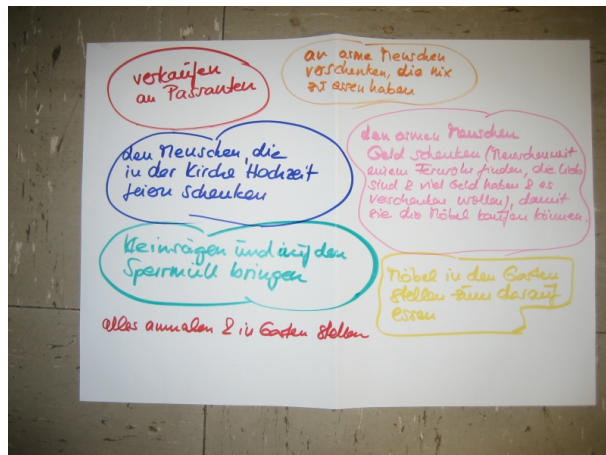 verkaufen
an Passanten
an arme Menschen
verschenken, die nix
zu essen haben
den Menschen, die
in der Kirche Hochzeit
feiern schenken
den armen Menschen
Geld schenken (Menschen mit
einem Fernrohr finden, die lieb
sind & viel Geld haben & es
verschenken wollen), damit
sie die Möbel kaufen können.
kleinsägen und auf den
Sperrmüll bringen
Möbel in den Garten
stellen zum darauf
essen
alles anmalen & in Garten stellen